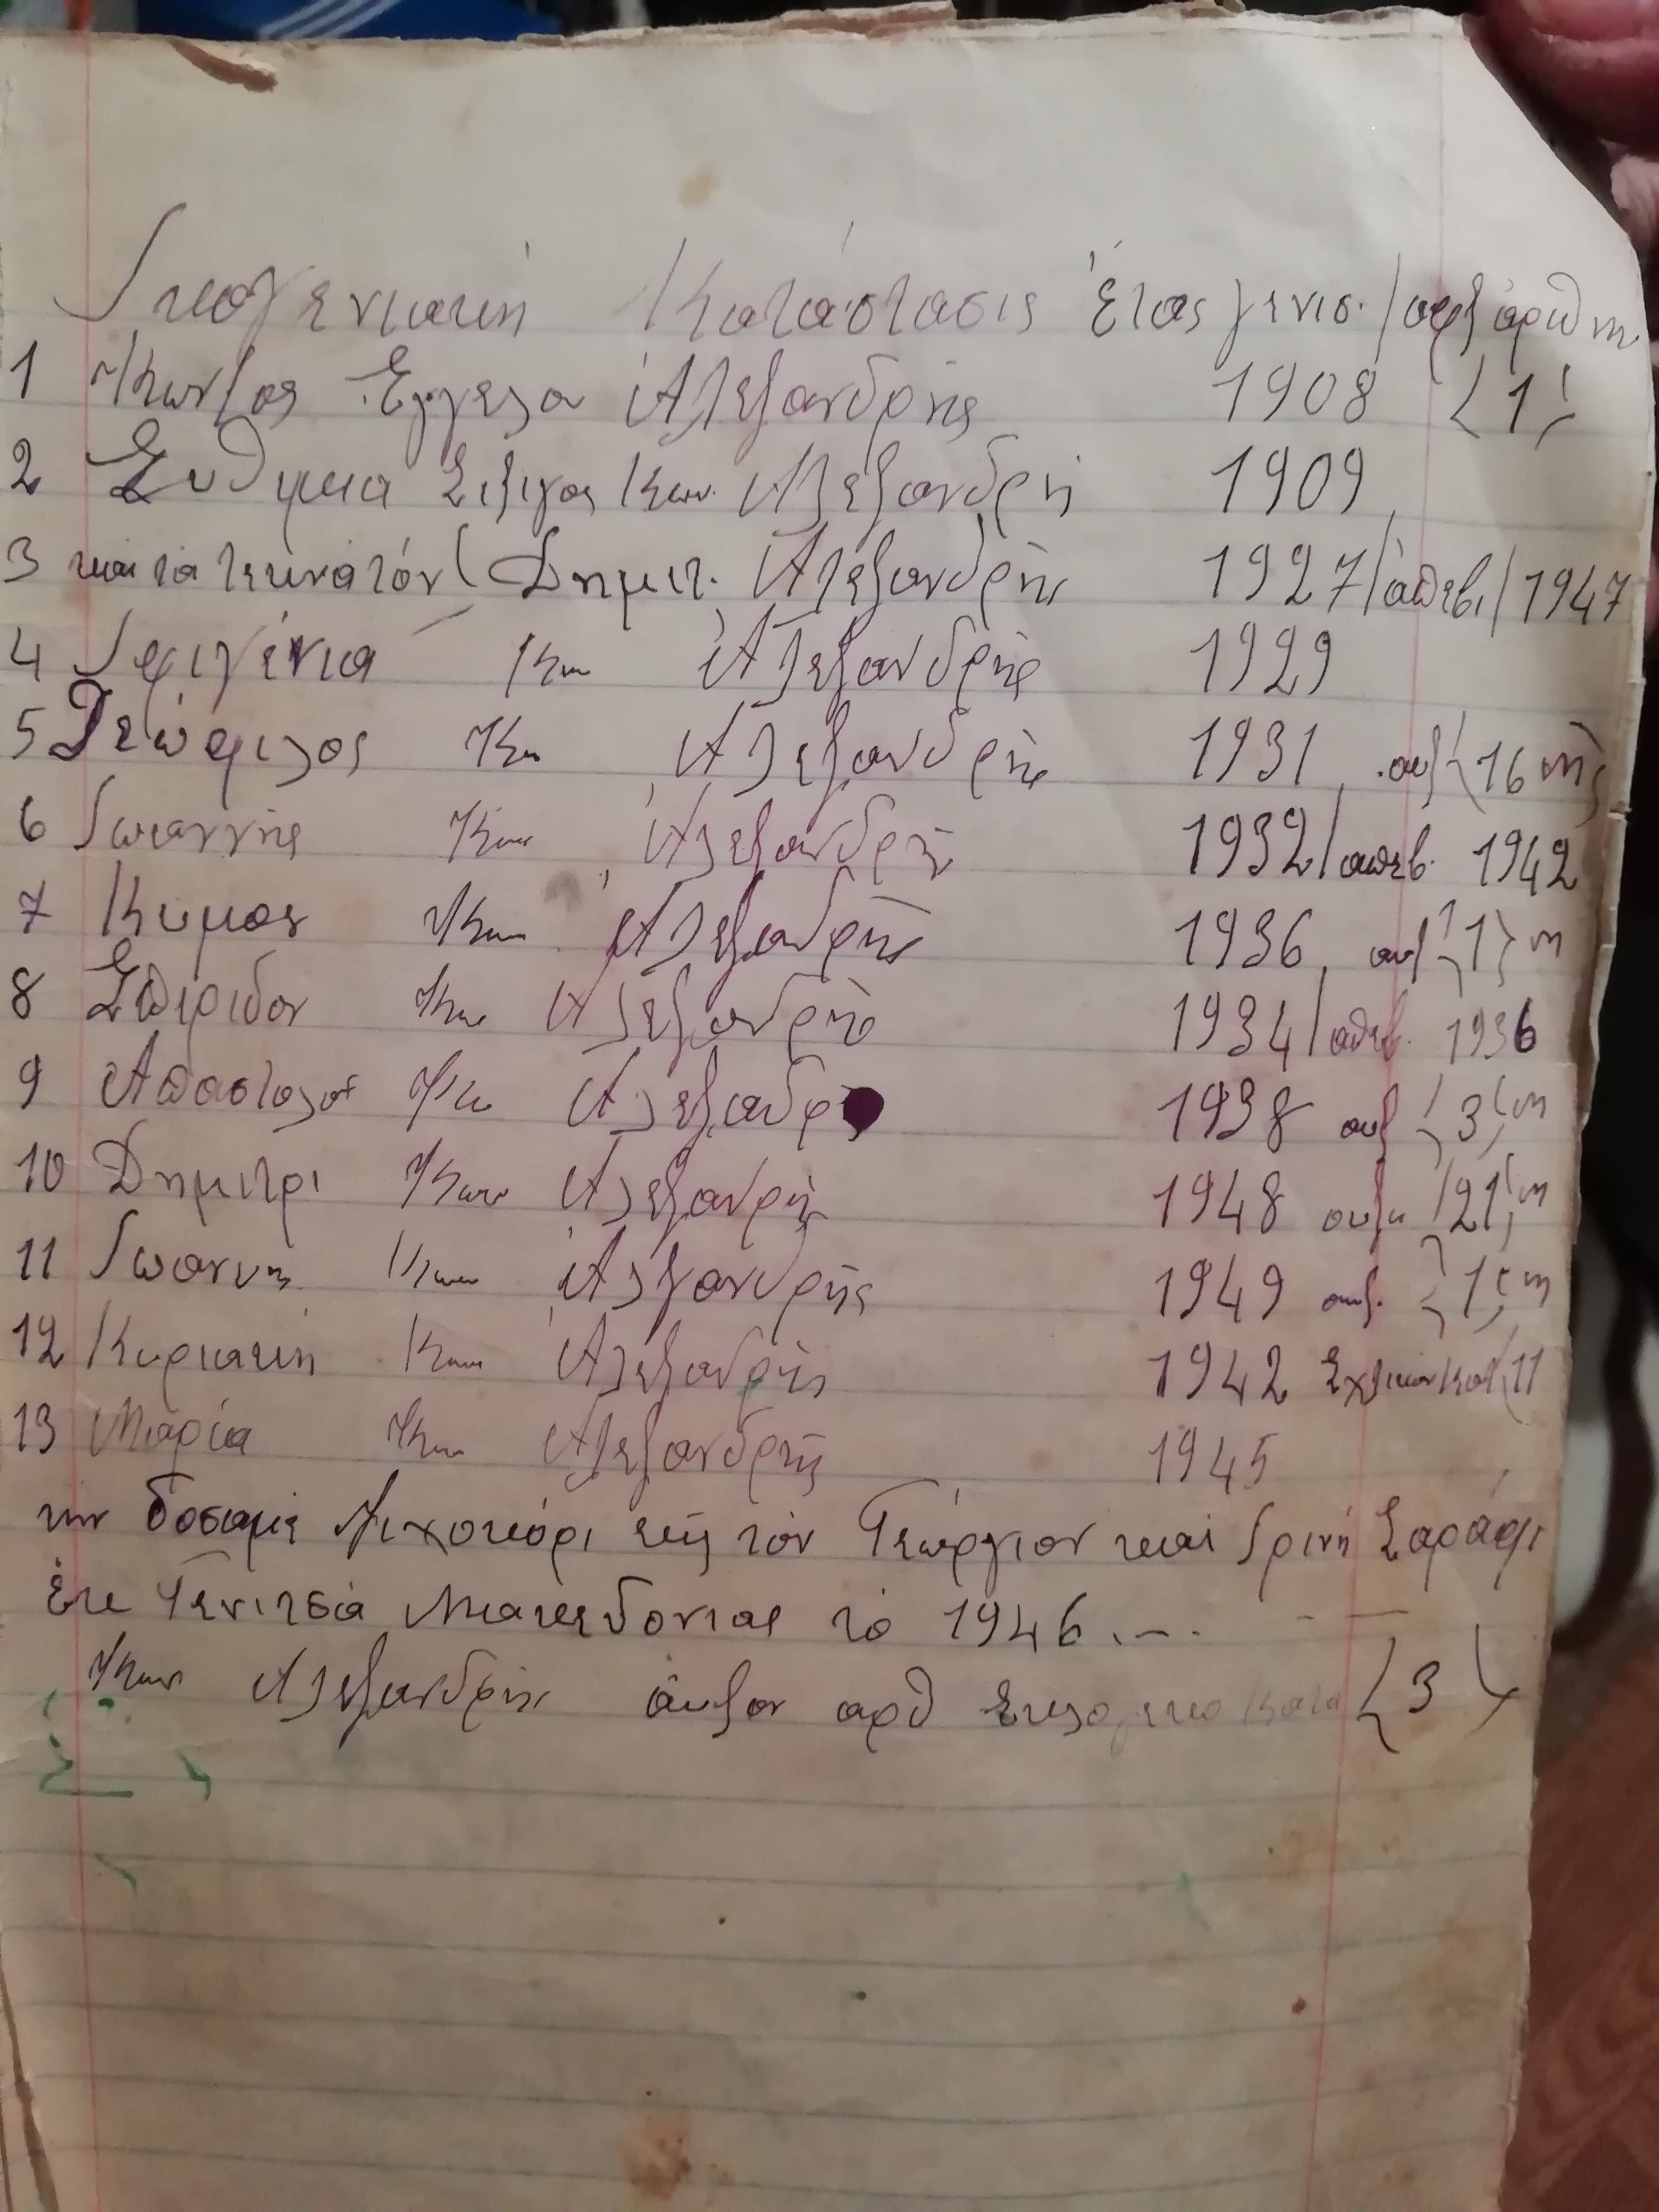 Ικογενιακή Κατάστασις έτος γενισ. /αυξ αριθ
1 Κων/ος Αλεξανδρής 1908 {1}
2 Εύθιμια Σιζιγος Κων. Αλεξανδρή 1909
3 και τα τεκνα τόν ( Δημιτ. Αλεξανδρής 1927/άπεβ./1947
4 Ιφιγένια Κω Αλεξανδρής 1929
5 Γεώφιλος Κω Αλεξανδρής 1931 αυξ {16
6 Ιωαννης Κων Αλεξανδρή 1932/απεβ. 1942
7 Κιμον Κων Αλεξανδρής 1936 αυξ {1}
8 Σπιριδον Κω Αλεξανδρής 1934/απεβ. 1936
9 Αποστολος Κω Αλεξανδρ 1938 αυξ {3}
10 Διμιτρι Κων Αλεξανρή 1948 αυξ {21}
11 Ιωαννης Κων Αλξανδρής 1949 αυξ. {1}
12 Κυριακή Κων Αλεξανδρής 1942 11
13 Μαρία Κων Αλεξανδρής 1945
την δοσαμε ψιχοκόρι εις τόν Γεώργιον και Ιρινή Σαράφι
έκ Γενιτσά Μακεδονιας τό 1946.--.
Κων Αλεξανδρής άυξον αρθ {3}